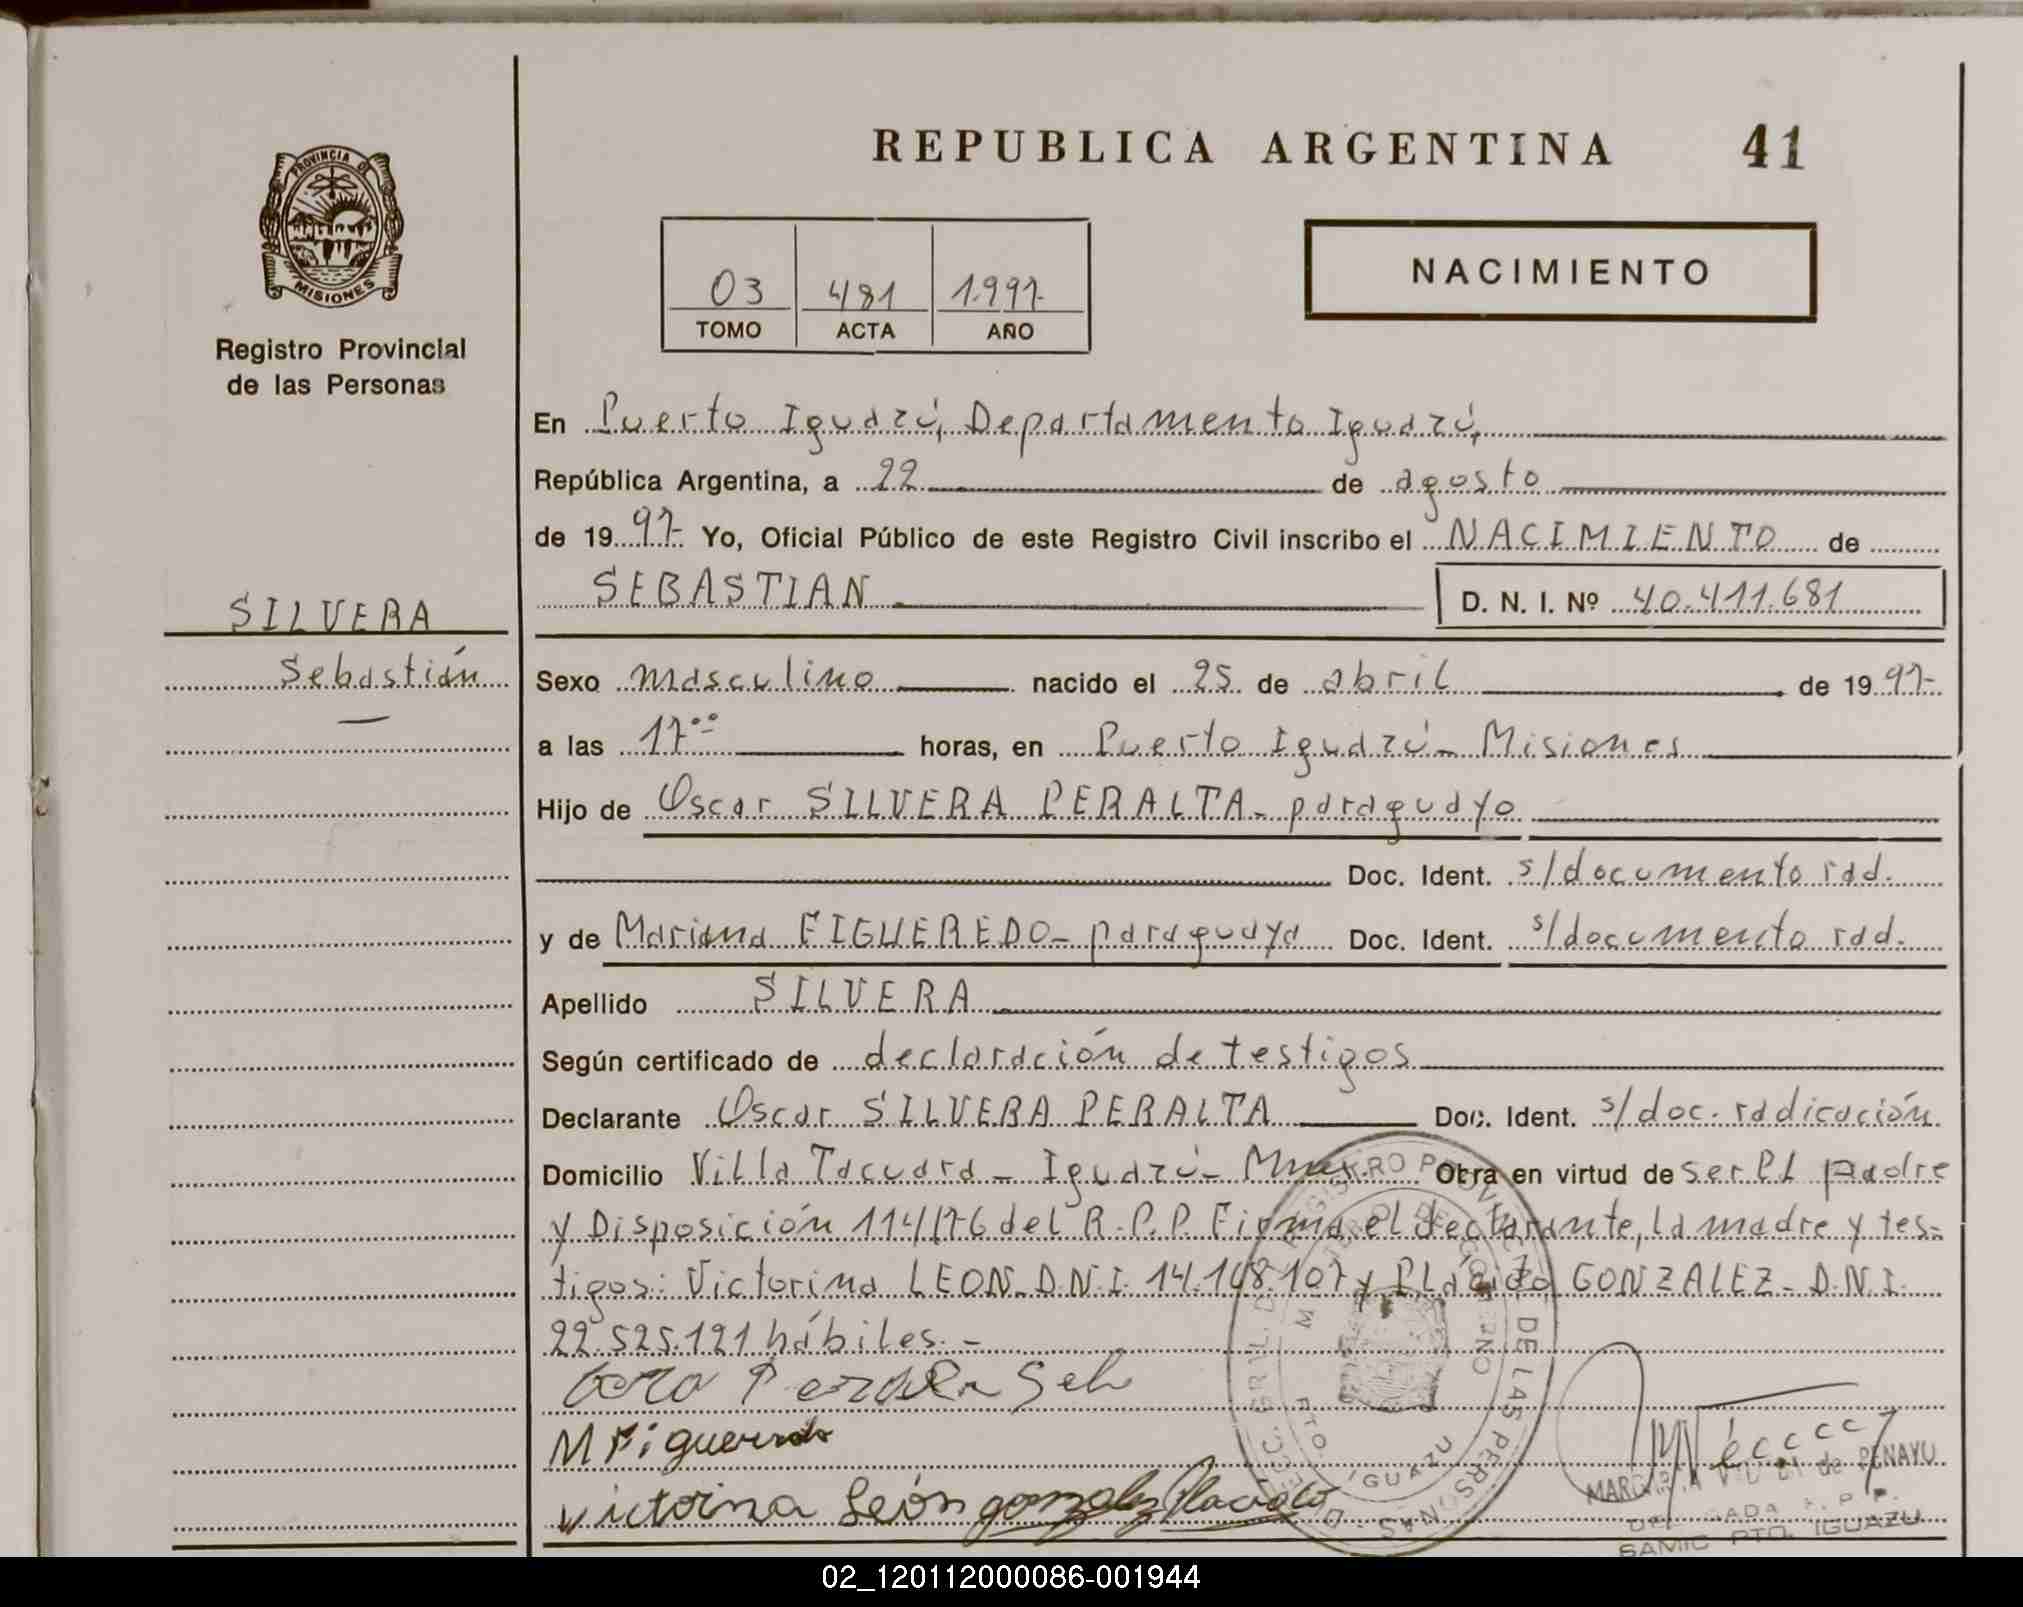 REPUBLICA ARGENTINA 41
PROVINCIA DE
MISIONES
Registro Provincial
de las Personas
NACIMIENTO
03 481 1.997
TOMO ACTA AÑO
En Puerto Iguazú, Departamento Iguazú,
República Argentina, a 22 de agosto
de 1997 Yo, Oficial Público de este Registro Civil inscribo el NACIMIENTO de
SEBASTIAN D. N. I. Nº 40.411.681
SILVERA
Sebastián
Sexo masculino nacido el 25 de abril de 1997
a las 17⁰⁰ horas, en Puerto Iguazú - Misiones
Hijo de Oscar SILVERA PERALTA - paraguayo
Doc. Ident. s/documento rad.
y de Mariana FIGUEREDO - paraguaya Doc. Ident. s/documento rad.
Apellido SILVERA
Según certificado de declaración de testigos
Declarante Oscar SILVERA PERALTA Doc. Ident. s/doc. radicación
Domicilio Villa Tacuara - Iguazú - Mnes. Obra en virtud de ser el padre
y Disposición 114/76 del R.P.P. Firma el declarante, la madre y tes-
tigos: Victorina LEON D.N.I. 14.148.107 y Placido GONZALEZ - D.N.I.
22.525.121 hábiles. -
M Figueredo
Victorina León gonzalez Placido
DE LAS PERSONAS
PTO. IGUAZU
de PENAYO
SAMIC PTO. IGUAZU
02_120112000086-001944